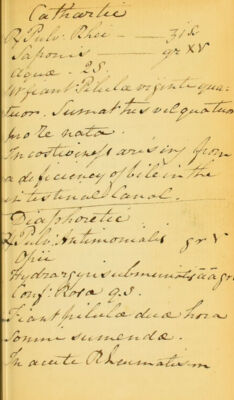 Cathartic
℞ Pulv. Rhei — ʒiß
Saponis — gr XV
Aquæ. 2S
Ut fiant Pilulæ viginti qua-
tuor. Sumat tres vel quatuor
mo re nata.
In costiveness arising from
a deficiency of bile in the
intestinal Canal.
Diaphoretic
℞ Pulv: Antimonialis gr V
Opii
Hydrargyri submuriatis āā gr
Conf: Rosæ q.s.
Fiant pilulæ duæ hora
Somni sumendæ.
In acute Rheumatism